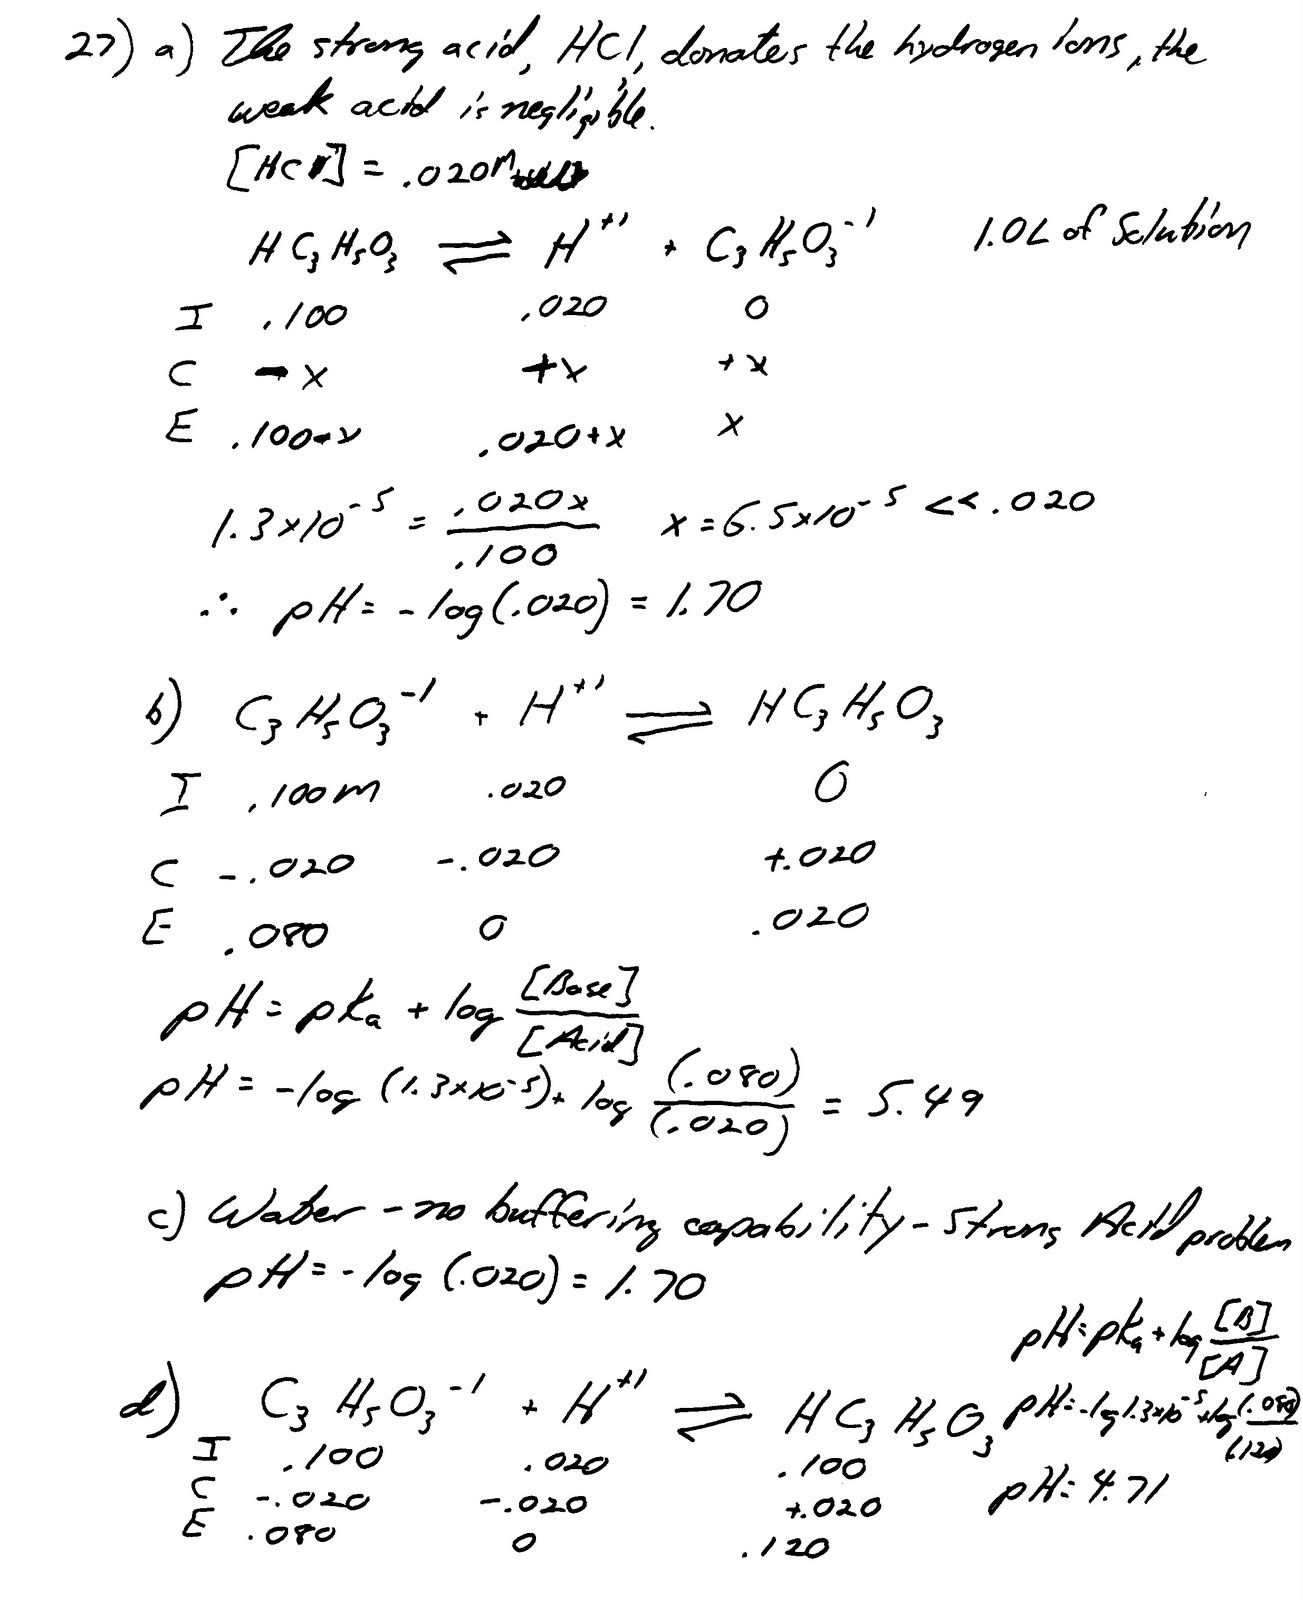 27) a) The strong acid, HCl, donates the hydrogen ions, the
weak acid is negligible.
[HCl] = .020M
HC₃H₅O₃ ⇌ H⁺¹ + C₃H₅O₃⁻¹ 1.0L of Solution
I .100 .020 0
C -x +x +x
E .100-x .020+x x
1.3x10⁻⁵ = .020x/.100 x = 6.5x10⁻⁵ << .020
∴ pH = -log(.020) = 1.70
b) C₃H₅O₃⁻¹ + H⁺¹ ⇌ HC₃H₅O₃
I .100M .020 0
C -.020 -.020 +.020
E .080 0 .020
pH = pka + log [Base]/[Acid]
pH = -log (1.3x10⁻⁵) + log (.080)/(.020) = 5.49
c) Water - no buffering capability - Strong Acid problem
pH = -log (.020) = 1.70
pH = pka + log [B]/[A]
d) C₃H₅O₃⁻¹ + H⁺¹ ⇌ HC₃H₅O₃ pH = -log 1.3x10⁻⁵ + log (.080)/(.120)
I .100 .020 .100
C -.020 -.020 +.020 pH = 4.71
E .080 0 .120